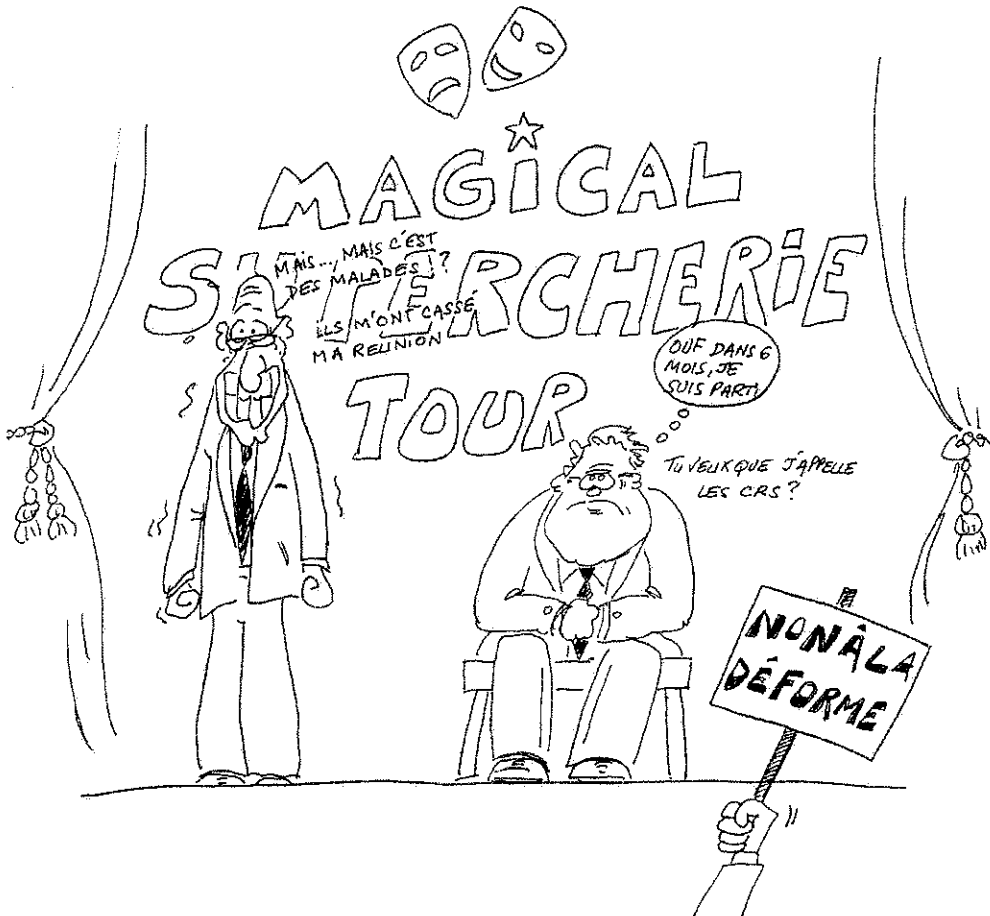 MAGICAL
SUPERCHERIE
TOUR
MAIS..., MAIS C'EST
DES MALADES !?
ILS M'ONT CASSÉ
MA REUNION
OUF DANS 6
MOIS, JE
SUIS PARTI
TU VEUX QUE J'APPELLE
LES CRS ?
NON À LA
DÉFORME